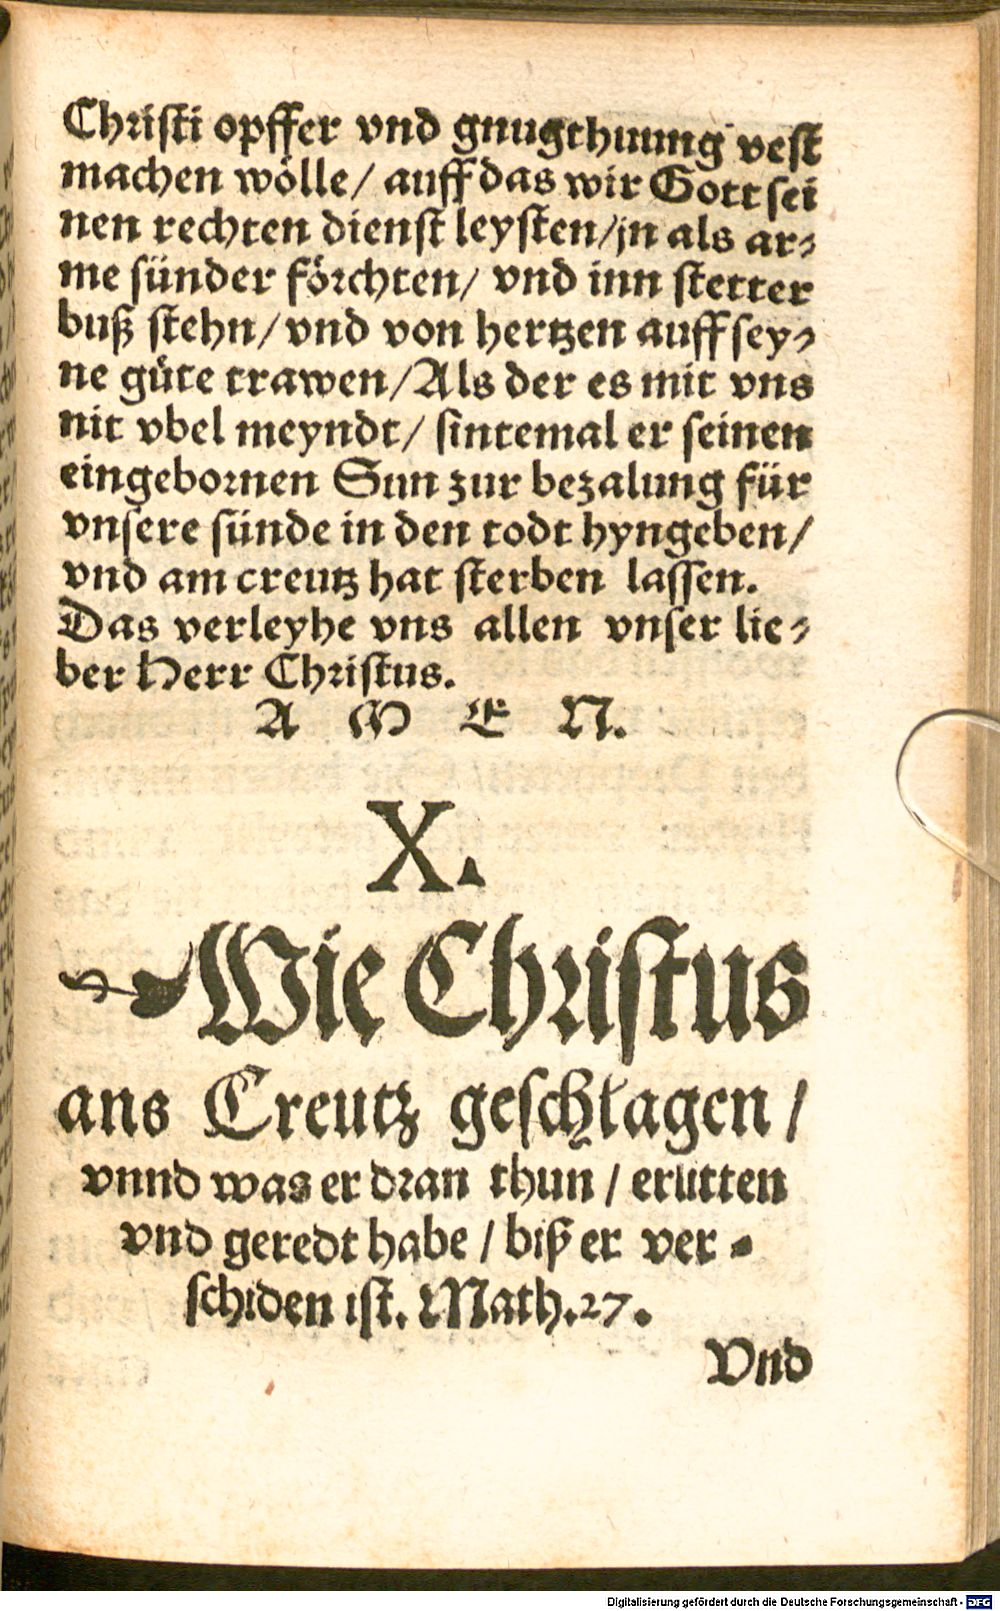 Christi opffer vnd gnugthuung vest
machen wölle/ auff das wir Gott sei
nen rechten dienst leysten/jn als ar⸗
me sünder förchten/ vnd inn stetter
buß stehn/ vnd von hertzen auff sey⸗
ne güte trawen/Als der es mit vns
nit vbel meyndt/ sintemal er seinen
eingebornen Sun zur bezalung für
vnsere sünde in den todt hyngeben/
vnd am creutz hat sterben lassen.
Das verleyhe vns allen vnser lie⸗
ber Herr Christus.
A M E N.
X.
Wie Christus
ans Creutz geschlagen/
vnnd was er dran thun/ erlitten
vnd geredt habe/ biß er ver⸗
schiden ist. Math.27.
Vnd
Digitalisierung gefördert durch die Deutsche Forschungsgemeinschaft - DFG